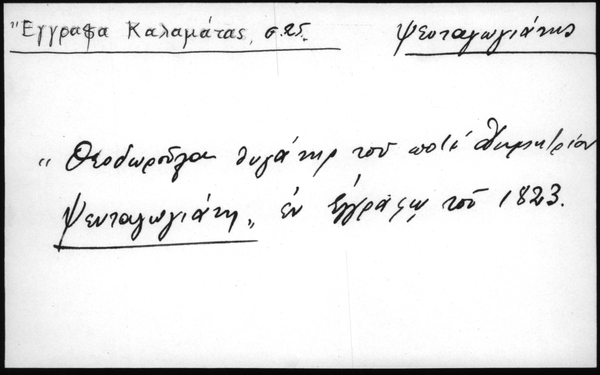 "Έγγραφα Καλαμάτας, σ. 25.
Ψευταγωγιάτης
"Θεοδωρούλα θυγάτηρ του ποτέ Δημητρίου
Ψευταγωγιάτη„ εν εγγράφω του 1823.